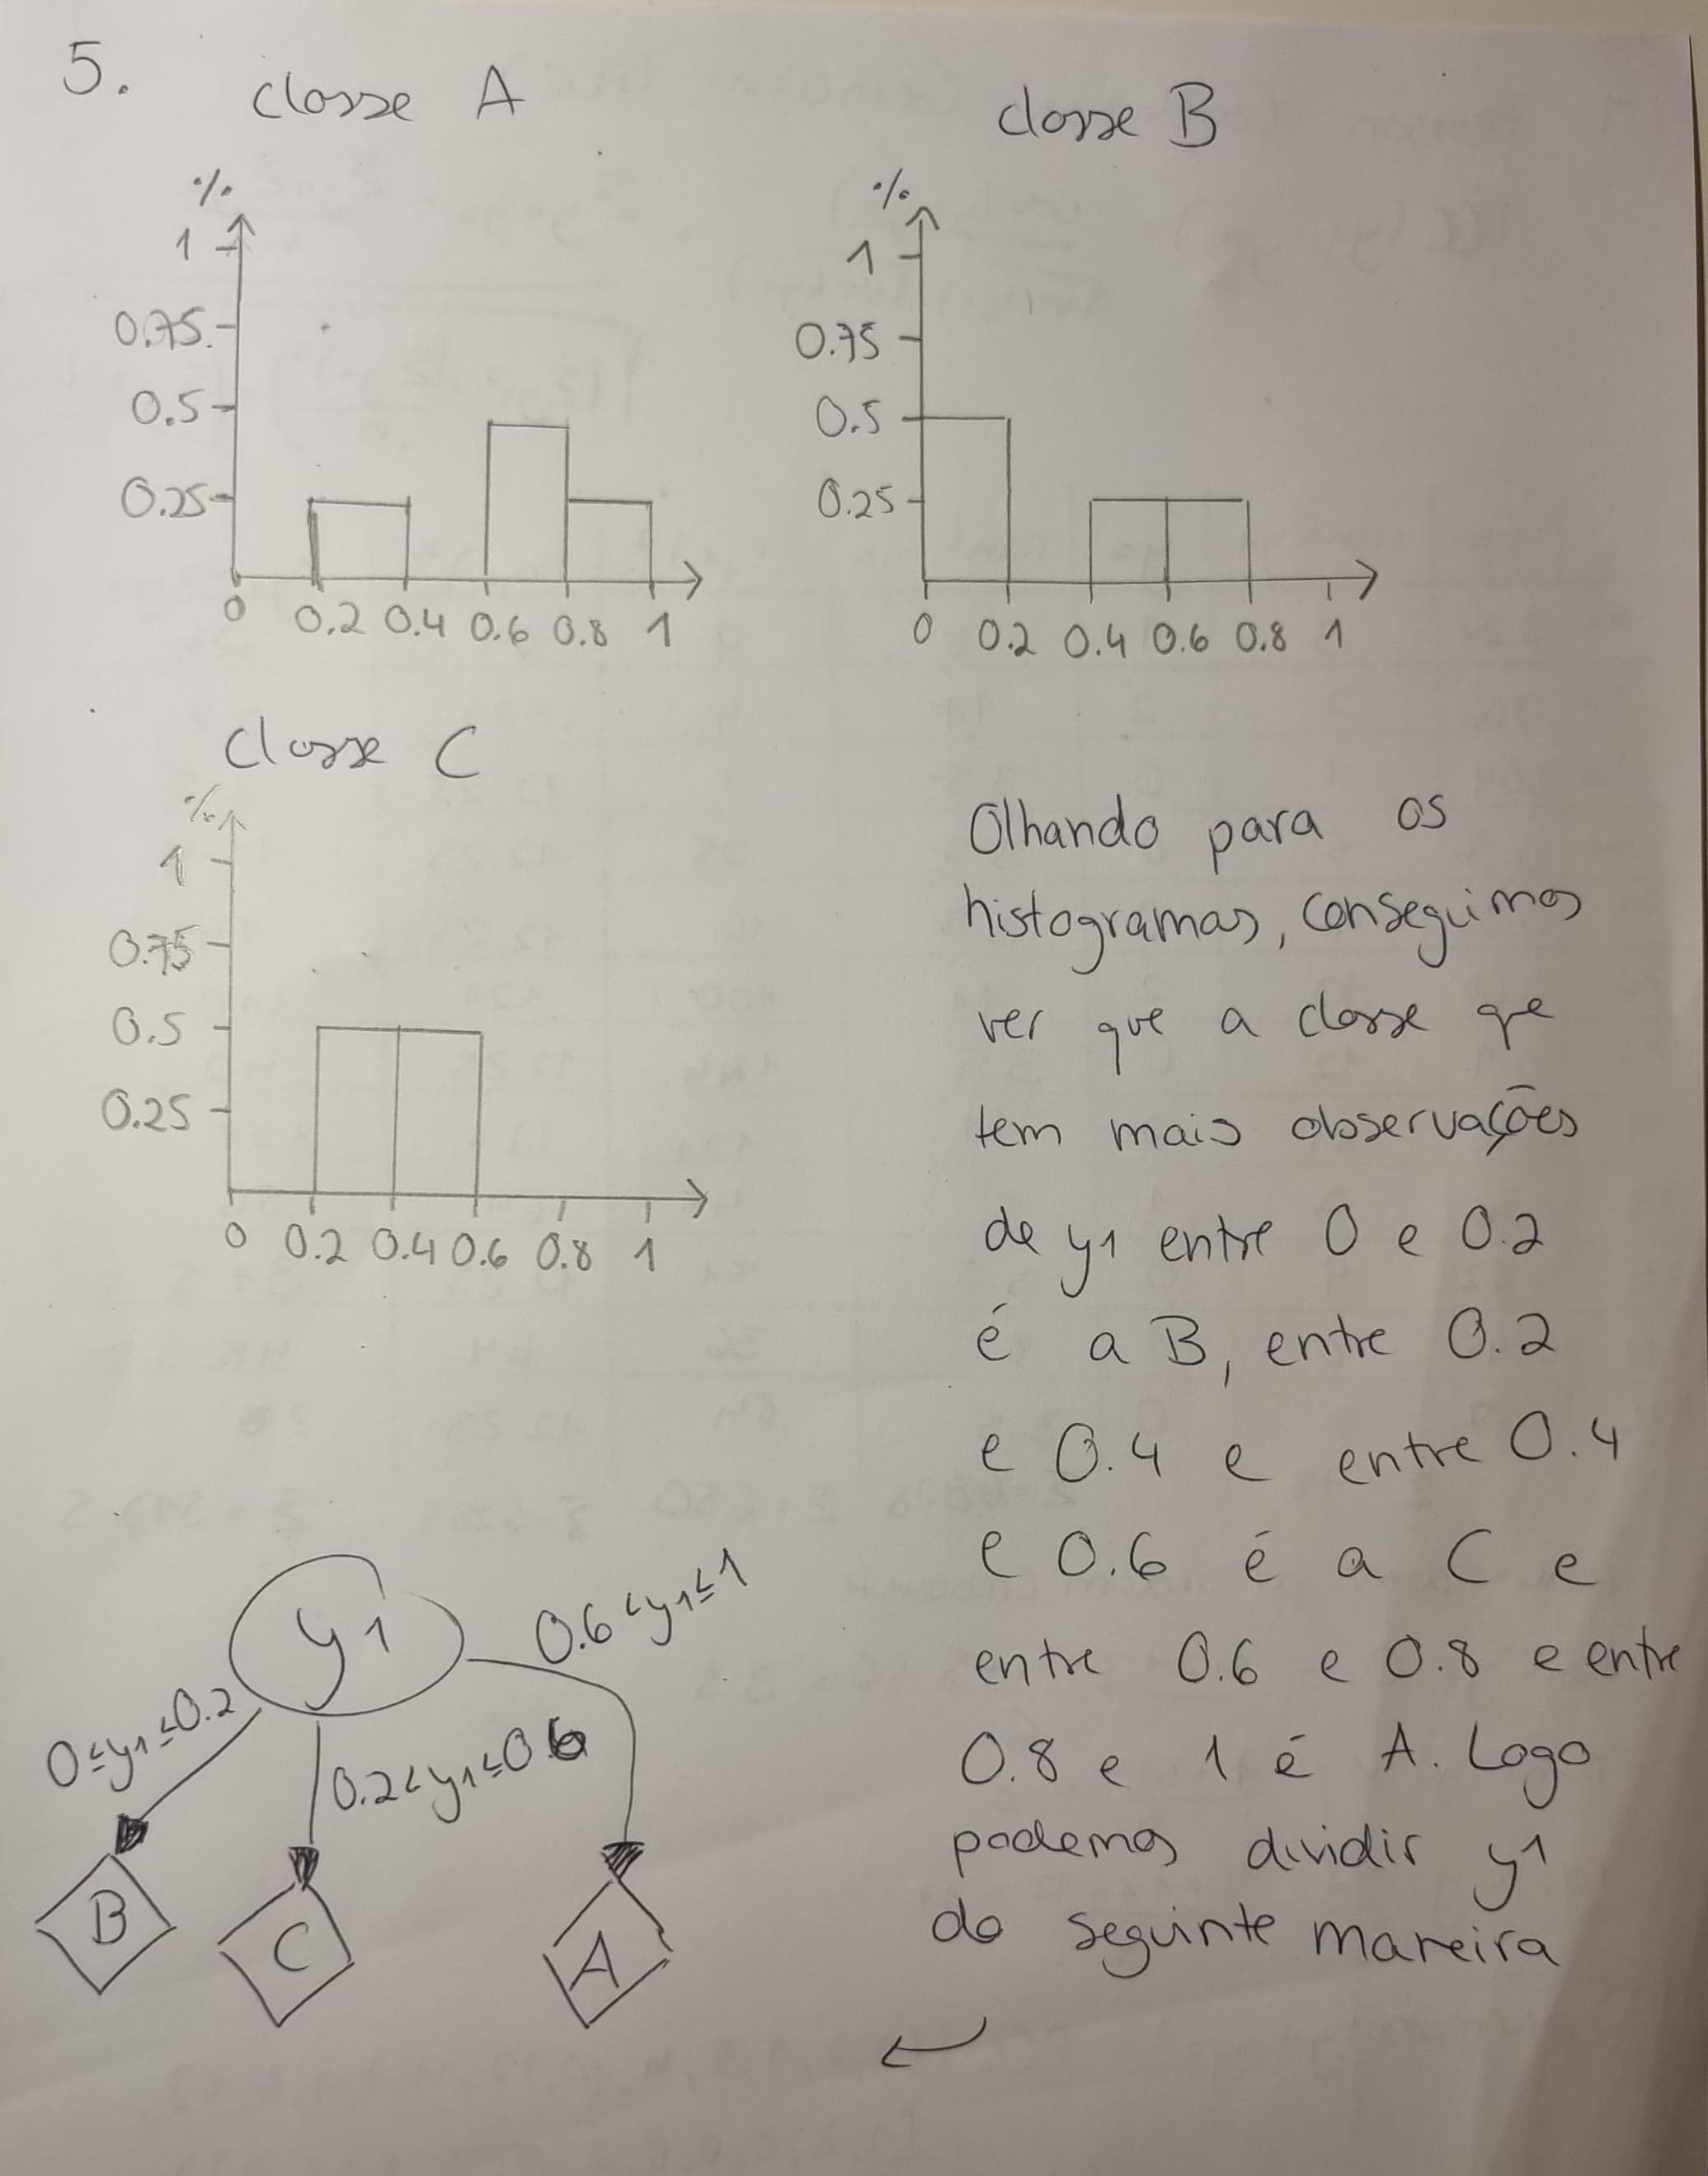 5.
classe A
classe B
%
1
0.75
0.5
0.25
0 0.2 0.4 0.6 0.8 1
%
1
0.75
0.5
0.25
0 0.2 0.4 0.6 0.8 1
classe C
%
1
0.75
0.5
0.25
0 0.2 0.4 0.6 0.8 1
Olhando para os
histogramas, conseguimos
ver que a classe que
tem mais observações
de y1 entre 0 e 0.2
é a B, entre 0.2
e 0.4 e entre 0.4
e 0.6 é a C e
entre 0.6 e 0.8 e entre
0.8 e 1 é A. Logo
podemos dividir y1
do seguinte maneira
y1
0≤y1≤0.2
0.2<y1≤0.6
0.6<y1≤1
B
C
A